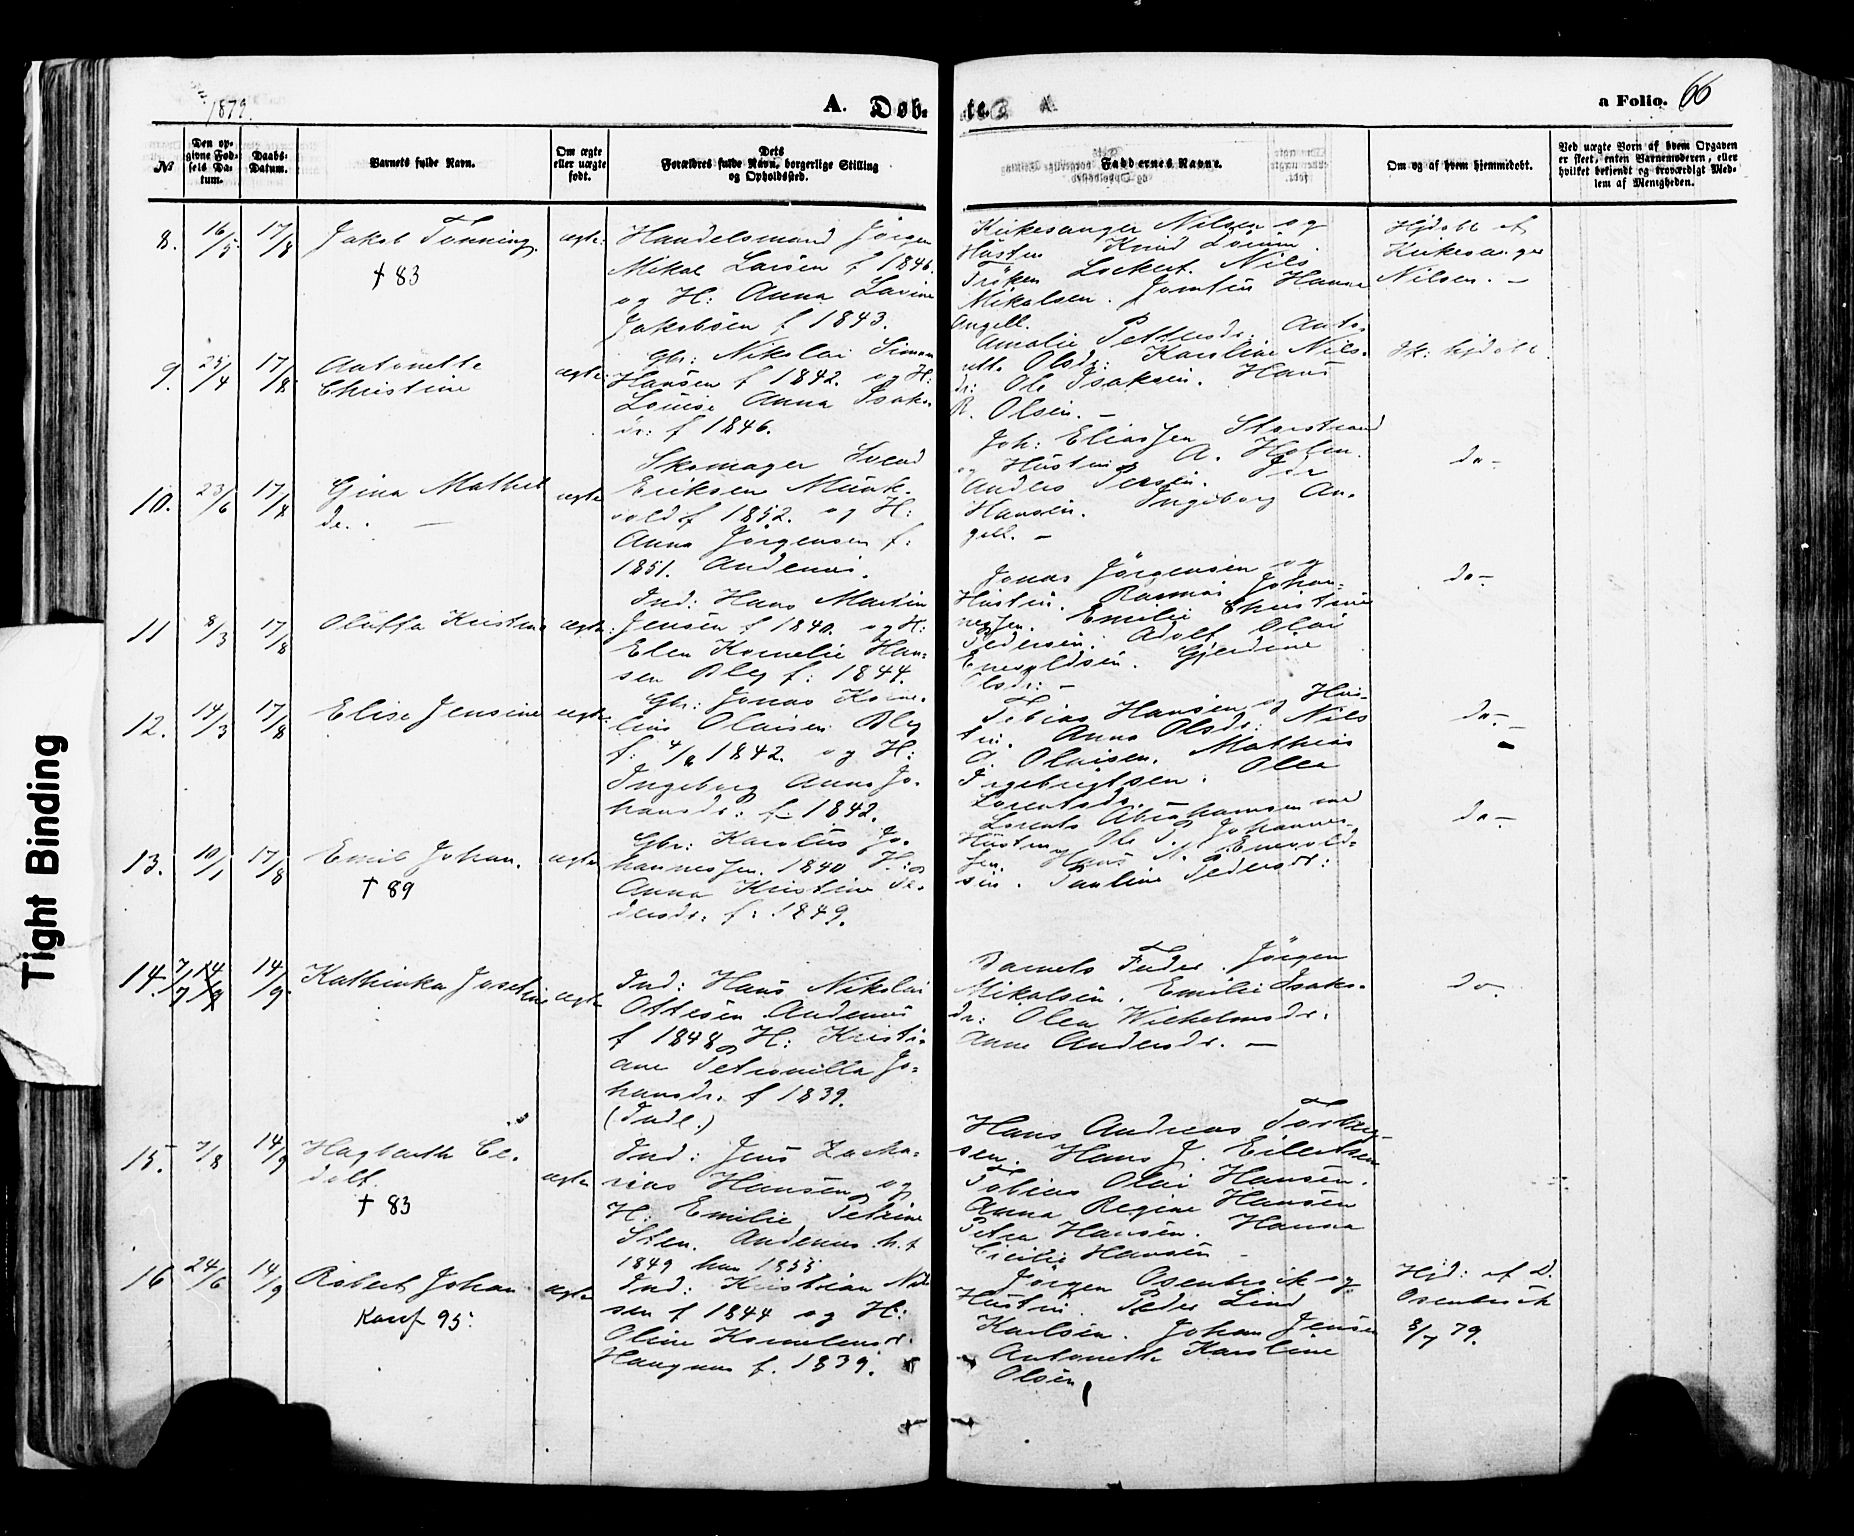 1879.
A. Døb-
te. A.
a Folio. 66
№
Den op-
givne Fød-
sels Da-
tum.
Daabs-
Datum.
Barnets fulde Navn.
Om ægte
eller uægte
født.
Dets
Forældres fulde Navn, borgerlige Stilling
og Opholdssted.
Faddernes Navne.
Om og af hvem hjemmedøbt.
Ved uægte Børn af hvem Opgaven
er skeet, enten Barnemoderen, eller
hvilket bekjendt og troværdigt Med-
lem af Menigheden.
8. 16/5 17/8 Jakob Tønning.
† 83
ægte.
Handelsmand Jørgen
Mikal Larsen f 1846.
og H: Anna Lavine
Jakobsen f 1843.
Kirkesanger Nilsen og
Hustru Knud
Frøken Lockert. Nils
Mikalsen. Jomfru Hanna
Angell.
Hjdøbt af
Kirkesanger
Nilsen. –
9. 25/4 17/8 Antonette
Christine
ægte.
Gbr: Nikolai Simon
Hansen f 1842. og H:
Louise Anna Isaks-
dr: f 1846.
Amalie Pettersdr: Anto-
nette Olsdr: Karoline Nils-
dr: Ole Isaksen. Hans
R. Olsen. –
hjdøbt.
10. 23/6 17/8 Gina Mathil-
de. –
ægte
Skomager Svend
Eriksen Munk-
vold f 1852. og H:
Anna Jørgensen f:
1851. Andenes.
Joh: Eliassen Storstrand
og Hustru A. Holm.
Anders Persen.
Hansen. Ingeborg An-
gell. –
do –
11 8/3 17/8 Oluffa Kristine
ægte:
Ind: Hans Martin
Jensen f 1840. og H:
Elen Kornelie Han-
sen Bley f: 1844.
Jonas Jørgensen og
Hustru. Rasmus Johan-
nessen. Emilie Christine
Pedersen. Adolf Olai
Enevoldsen. Gjerdine
Olsdr: –
do –
12. 14/3 17/8 Elise Jensine
ægte.
Gbr: Jonas Korne-
lius Olaisen Bley
f: 1842. og H:
Ingeborg Anna Jo-
hansdr: f: 1842.
Tobias Hansen og Hus-
tru. Anna Olsdr: Nils
O. Olaisen. Mathias
Ingebrigtsen. Olea
Lorentsdr:
do –
13. 10/1 17/8 Emil Johan.
† 89
ægte
Gbr: Karolus Jo-
hannessen. 1840 H: og
Anna Kristine Pe-
dersdr: f: 1849.
Lorents Abrahamsen med
Hustru Ole P. Johannes-
sen. Hans N. Enevold-
sen. Pauline Pedersdr:
do –
14. 7/7 14/9 14/9. Kathinka Josefine
ægte
Ind: Hans Nikolai
Ottesen Andenes
f 1848 og H: Kristi-
ane Petronilla Jo-
hansdr. f 1839.
(Indl.)
Barnets Fader. Jørgen
Mikalsen. Emilie Isaks-
dr: Olea Wilhelmsdr.
Anne Andersdr. –
do.
15. 7/8 14/9 Hagbarth
† 83
ægte
Ind: Jens Zacha-
rias Hansen og
H: Emilie Petrine
Sten. Andenes. h. f
1849 han 1855
Hans Andreas
sen. Hans J. Eilertsen
Tobias Olai Hansen.
Anna Regine Hansen
Petra Hansen. Hanna
Cicilie Hansen –
16 24/6 14/9 Robert Johan
Konf 95.
ægte
Ind: Kristian Nil-
sen f 1844 og H:
Oline Kornelius-
Haugnes f. 1839.
Jørgen Osenbroch og
Hustru. Peder Lind
Karlsen. Johan Jensen
Antonette Karoline
Olsen
Hjd: af D.
Osenbroch
8/7 79.
Tight Binding